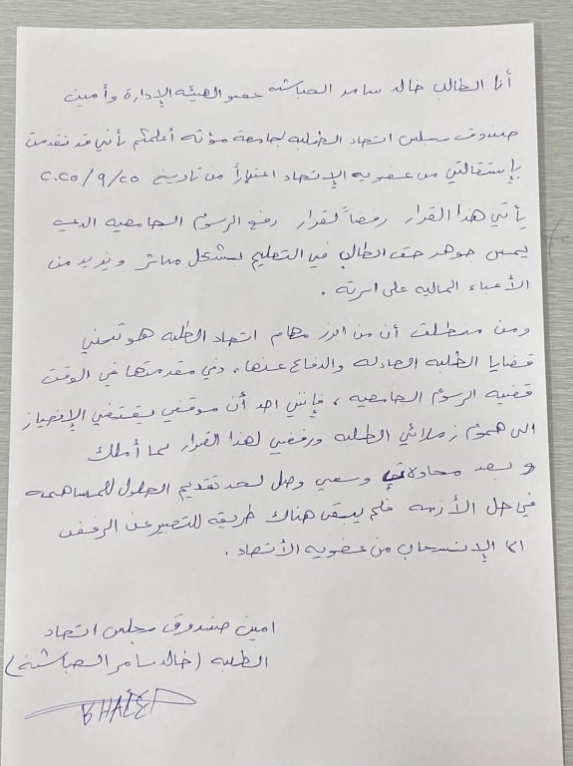 أنا الطالب خالد سامر الصباشنة عضو الهيئه الإدارة وأمين
صندوق مجلس اتحاد الطلبه لجامعة مؤته أعلمكم بأني قد تقدمت
بإستقالتي من عضويه الإتحاد اعتباراً من تاريخ ٢٠٢٥/٩/٢٥
يأتي هذا القرار رفضاً لقرار رفع الرسوم الجامعيه الذي
يمس جوهر حق الطالب في التعليم بشكل مباشر ويزيد من
الأعباء الماليه على اسرته .
ومن منطلق أن من ابرز مهام اتحاد الطلبه هو تبني
قضايا الطلبه العادله والدفاع عنها، وفي مقدمتها في الوقت
قضيه الرسوم الجامعيه ، فإنني اجد أن موقفي يقتضي الإنحياز
الى هموم زملائي الطلبه ورفضي لهذا القرار بما أملك
و بعد محاولاتي وسعي وصل لحد تقديم الحلول للمساهمه
في حل الأزمه فلم يبقى هناك طريقه للتعبير عن الرفض
الا الإنسحاب من عضويه الأتحاد .
امين صندوق مجلس اتحاد
الطلبه (خالد سامر الصباشنة)
KHALED